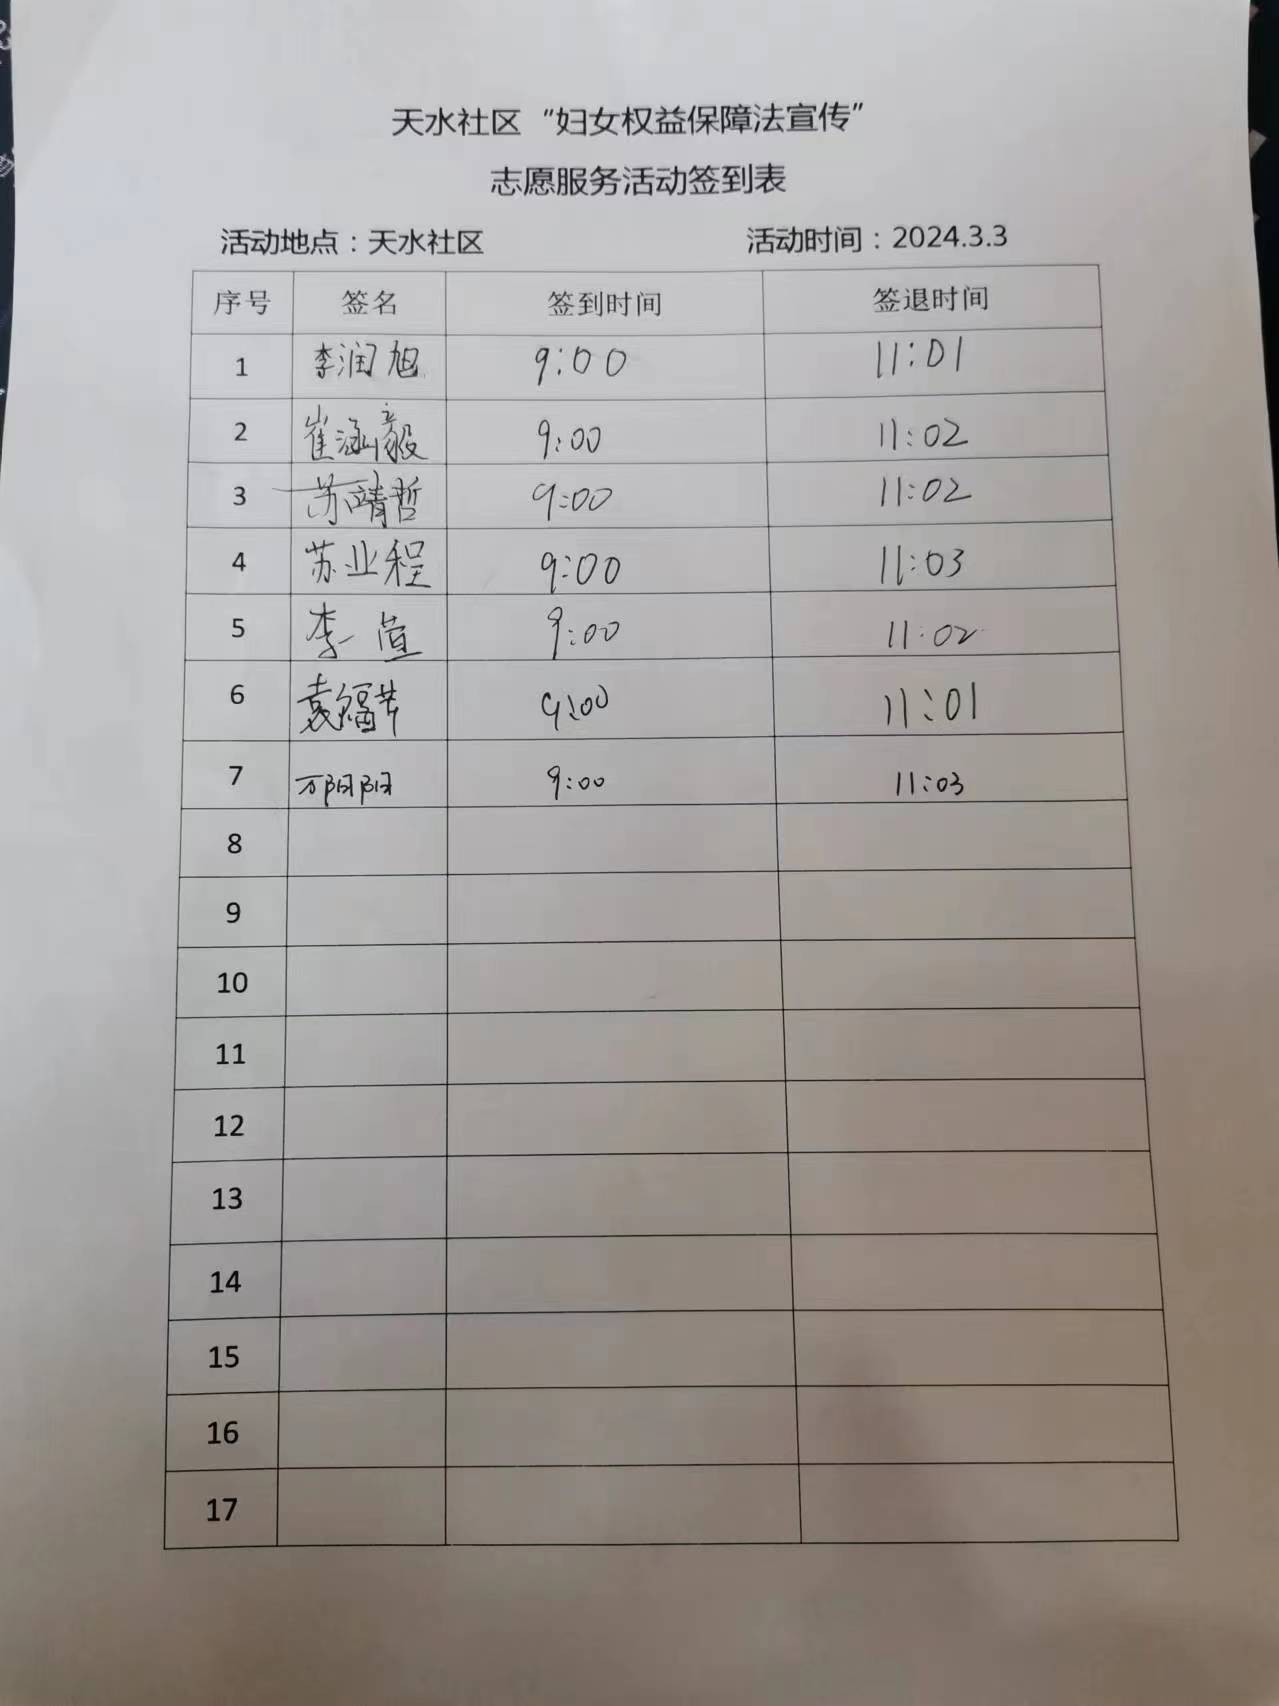 天水社区“妇女权益保障法宣传”
志愿服务活动签到表
活动地点：天水社区 活动时间：2024.3.3
序号 签名 签到时间 签退时间
1 李润旭 9:00 11:01
2 崔涵毅 9:00 11:02
3 苏靖哲 9:00 11:02
4 苏业程 9:00 11:03
5 李萱 9:00 11:02
6 袁福苹 9:00 11:01
7 万阳阳 9:00 11:03
8
9
10
11
12
13
14
15
16
17